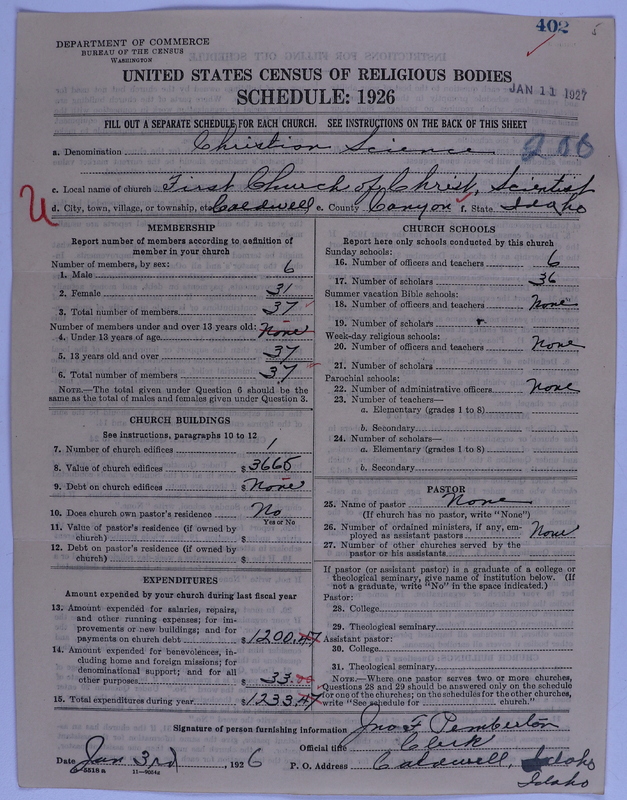 402
5
DEPARTMENT OF COMMERCE
BUREAU OF THE CENSUS
WASHINGTON
UNITED STATES CENSUS OF RELIGIOUS BODIES
SCHEDULE: 1926
JAN 11 1927
FILL OUT A SEPARATE SCHEDULE FOR EACH CHURCH. SEE INSTRUCTIONS ON THE BACK OF THIS SHEET
a. Denomination Christian Science
c. Local name of church First Church of Christ, Scientist
U d. City, town, village, or township, etc. Caldwell e. County Canyon f. State Idaho
MEMBERSHIP
Report number of members according to definition of
member in your church
Number of members, by sex:
1. Male 6
2. Female 31
3. Total number of members 37
Number of members under and over 13 years old:
4. Under 13 years of age None
5. 13 years old and over 37
6. Total number of members 37
NOTE.—The total given under Question 6 should be
same as the total of males and females given under Question 3.
CHURCH BUILDINGS
See instructions, paragraphs 10 to 12
7. Number of church edifices 1
8. Value of church edifices $3665
9. Debt on church edifices $None
10. Does church own pastor's residence No
Yes or No
11. Value of pastor's residence (if owned by
church) $
12. Debt on pastor's residence (if owned by
church) $
EXPENDITURES
Amount expended by your church during last fiscal year
13. Amount expended for salaries, repairs,
and other running expenses; for im-
provements or new buildings; and for
payments on church debt $1200.47
14. Amount expended for benevolences, in-
cluding home and foreign missions; for
denominational support; and for all
other purposes $33.
15. Total expenditures during year $1233.47
CHURCH SCHOOLS
Report here only schools conducted by this church
Sunday schools:
16. Number of officers and teachers 6
17. Number of scholars 36
Summer vacation Bible schools:
18. Number of officers and teachers None
19. Number of scholars
Week-day religious schools:
20. Number of officers and teachers None
21. Number of scholars
Parochial schools:
22. Number of administrative officers None
23. Number of teachers—
a. Elementary (grades 1 to 8)
b. Secondary
24. Number of scholars—
a. Elementary (grades 1 to 8)
b. Secondary
PASTOR
25. Name of pastor None
(If church has no pastor, write "None")
26. Number of ordained ministers, if any, em-
ployed as assistant pastors None
27. Number of other churches served by the
pastor or his assistants
If pastor (or assistant pastor) is a graduate of a college or
theological seminary, give name of institution below. (If
not a graduate, write "No" in the space indicated.)
Pastor:
28. College
29. Theological seminary
Assistant pastor:
30. College
31. Theological seminary
NOTE.—Where one pastor serves two or more churches,
Questions 28 and 29 should be answered only on the schedule
for one of the churches; on the schedules for the other churches,
write "See schedule for church."
Signature of person furnishing information Jno F Pemberton
Official title Clerk
Date Jan 3rd, 1926 P. O. Address Caldwell, Idaho
Idaho
5518 a 11—9004a